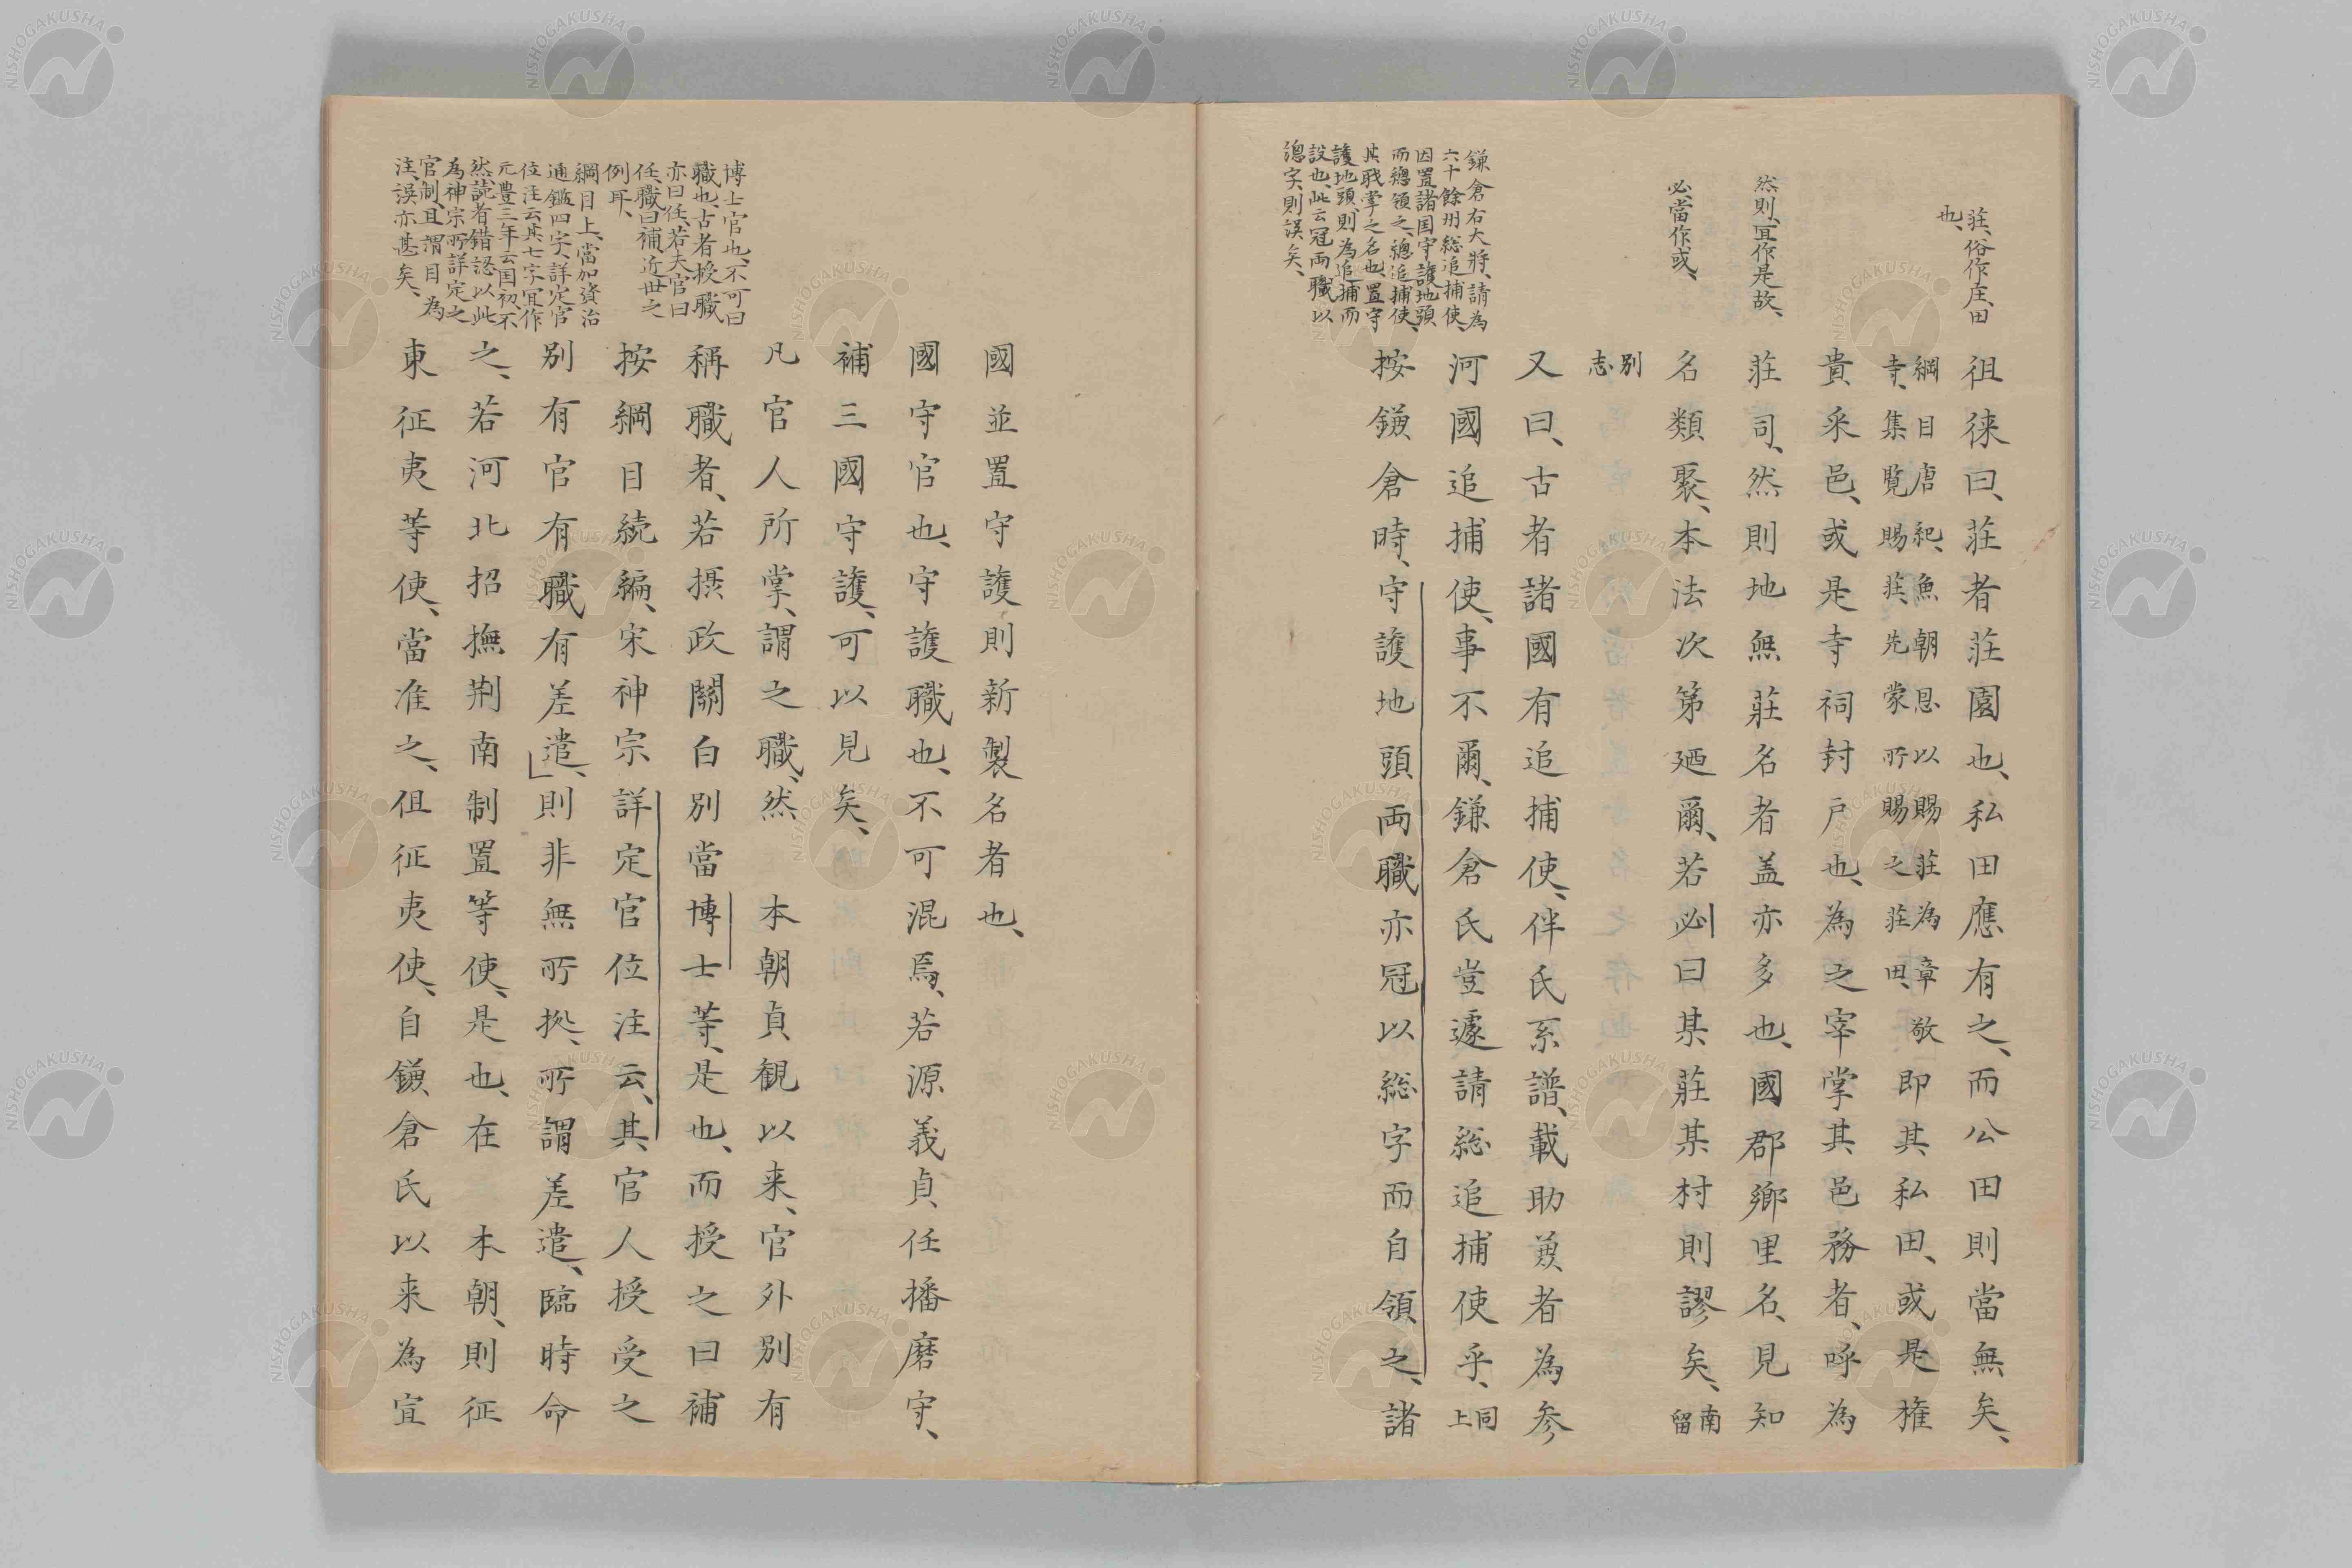 莊、俗作庄、田
也、
然則、宜作是故、
必當作或、
鎌倉右大將、請為
六十餘州総追捕使、
因置諸国守護地頭
而總領之、總追捕使、
其職掌之名也、置守
護地頭、則為追捕而
設也、此云冠両職以
總字、則誤矣、
徂徠曰、莊者莊園也、私田應有之、而公田則當無矣、
綱目唐紀、魚朝恩以賜莊為章敬
寺、集覧賜莊、先蒙所賜之莊田、
即其私田、或是権
貴采邑、或是寺祠封戸也、為之宰掌其邑務者、呼為
莊司、然則地無莊名者盖亦多也、國郡鄉里名、見知
名類聚、本法次第廼爾、若必曰某莊某村則謬矣、南留
別志
又曰、古者諸國有追捕使、伴氏系譜、載助兼者為参
河國追捕使、事不爾、鎌倉氏豈遽請総追捕使乎、同上
按鎌倉時、守護地頭両職亦冠以総字而自領之、諸
國並置守護則新製名者也、
國守官也、守護職也、不可混焉、若源義貞任播磨守、
補三國守護、可以見矣、
凡官人所掌、謂之職、然 本朝貞観以来、官外別有
稱職者、若摂政關白別當博士等、是也、而授之曰補
按綱目続編、宋神宗詳定官位注云、其官人授受之
別有官有職有差遣、則非無所拠、所謂差遣、臨時命
之、若河北招撫荆南制置等使、是也、在 本朝、則征
東征夷等使、當准之、伹征夷使、自鎌倉氏以来為宜
博士官也、不可曰
職也、古者授職
亦曰任、若夫官曰
任、職曰補、近世之
例耳、
綱目上、當加資治
通鑑四字、詳定官
位注云其七字宜作
元豊三年云国初、不
然、読者錯認以此
為神宗所詳定之
官制、且謂目為
注、誤亦甚矣、
NISHOGAKUSHA